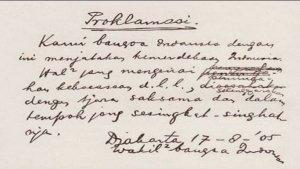 Proklamasi.
Kami bangsa Indonesia dengan
ini menjatakan kemerdekaan Indonesia.
Hal² jang mengenai
kekoeasaan d.l.l.,
dengan tjara saksama dan dalam
tempoh jang sesingkat-singkat-
nja.
Djakarta 17-8-'05
Wakil² bangsa Indonesia